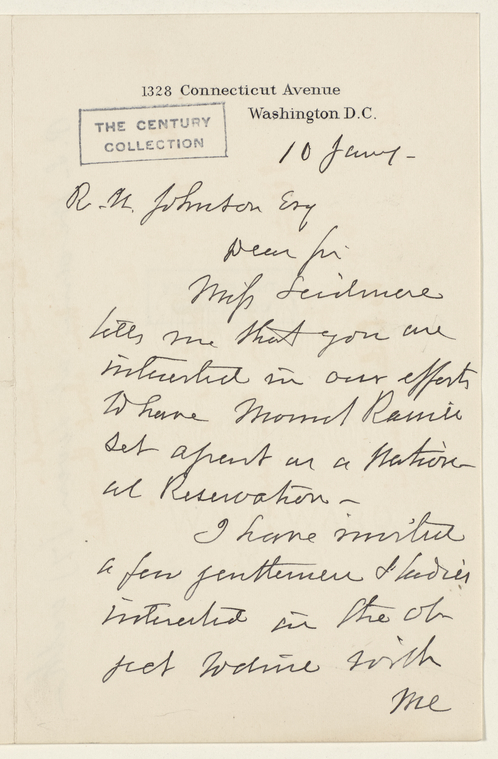 1328 Connecticut Avenue
Washington D.C.
THE CENTURY
COLLECTION
10 Jany -
R. U. Johnson Esq
Dear Sir
Miss Scidmore
tells me that you are
interested in our efforts
to have Mount Rainier
set apart as a Nation-
al Reservation -
I have invited
a few gentlemen & ladies
interested in the ob-
ject to dine with
me